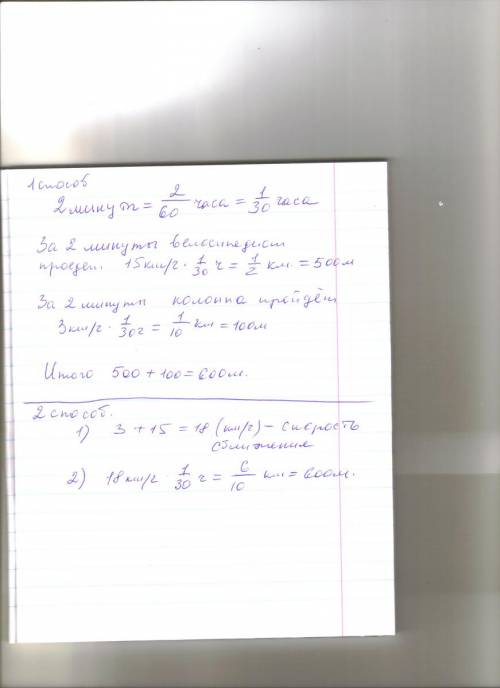 1 способ
2 минут = 2/60 часа = 1/30 часа
За 2 минуты велосипедист
проедет 15 км/г · 1/30 ч = 1/2 км. = 500 м
За 2 минуты колонна пройдёт
3 км/г · 1/30 г = 1/10 км = 100 м
Итого 500 + 100 = 600 м.
2 способ.
1) 3 + 15 = 18 (км/г) – скорость
сближения
2) 18 км/г 1/30 г = 6/10 км = 600 м.